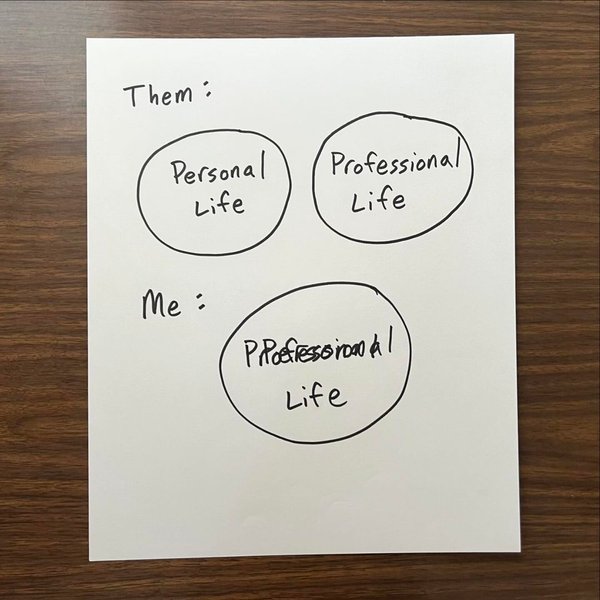 Them:
Personal
Life
Professional
Life
Me:
Life